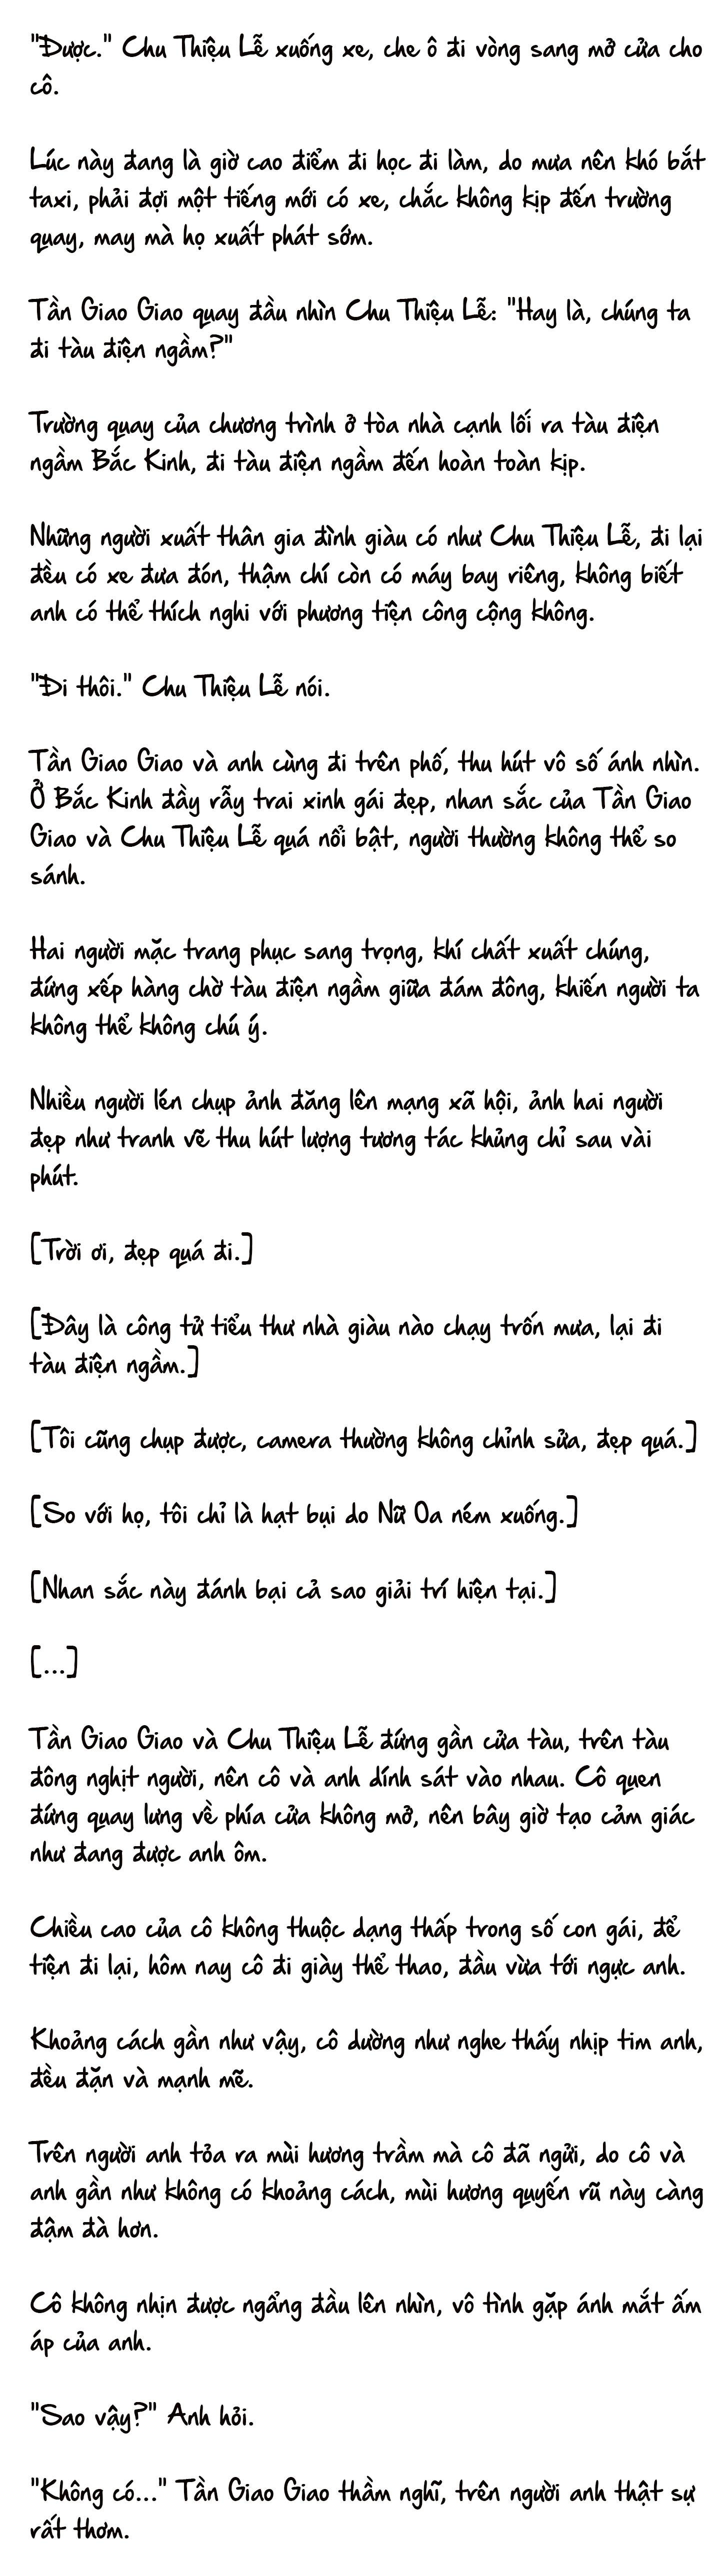 "Được." Chu Thiệu Lễ xuống xe, che ô đi vòng sang mở cửa cho
cô.
Lúc này đang là giờ cao điểm đi học đi làm, do mưa nên khó bắt
taxi, phải đợi một tiếng mới có xe, chắc không kịp đến trường
quay, may mà họ xuất phát sớm.
Tần Giao Giao quay đầu nhìn Chu Thiệu Lễ: "Hay là, chúng ta
đi tàu điện ngầm?"
Trường quay của chương trình ở tòa nhà cạnh lối ra tàu điện
ngầm Bắc Kinh, đi tàu điện ngầm đến hoàn toàn kịp.
Những người xuất thân gia đình giàu có như Chu Thiệu Lễ, đi lại
đều có xe đưa đón, thậm chí còn có máy bay riêng, không biết
anh có thể thích nghi với phương tiện công cộng không.
"Đi thôi." Chu Thiệu Lễ nói.
Tần Giao Giao và anh cùng đi trên phố, thu hút vô số ánh nhìn.
Ở Bắc Kinh đầy rẫy trai xinh gái đẹp, nhan sắc của Tần Giao
Giao và Chu Thiệu Lễ quá nổi bật, người thường không thể so
sánh.
Hai người mặc trang phục sang trọng, khí chất xuất chúng,
đứng xếp hàng chờ tàu điện ngầm giữa đám đông, khiến người ta
không thể không chú ý.
Nhiều người lén chụp ảnh đăng lên mạng xã hội, ảnh hai người
đẹp như tranh vẽ thu hút lượng tương tác khủng chỉ sau vài
phút.
[Trời ơi, đẹp quá đi.]
[Đây là công tử tiểu thư nhà giàu nào chạy trốn mưa, lại đi
tàu điện ngầm.]
[Tôi cũng chụp được, camera thường không chỉnh sửa, đẹp quá.]
[So với họ, tôi chỉ là hạt bụi do Nữ Oa ném xuống.]
[Nhan sắc này đánh bại cả sao giải trí hiện tại.]
[...]
Tần Giao Giao và Chu Thiệu Lễ đứng gần cửa tàu, trên tàu
đông nghịt người, nên cô và anh dính sát vào nhau. Cô quen
đứng quay lưng về phía cửa không mở, nên bây giờ tạo cảm giác
như đang được anh ôm.
Chiều cao của cô không thuộc dạng thấp trong số con gái, để
tiện đi lại, hôm nay cô đi giày thể thao, đầu vừa tới ngực anh.
Khoảng cách gần như vậy, cô dường như nghe thấy nhịp tim anh,
đều đặn và mạnh mẽ.
Trên người anh tỏa ra mùi hương trầm mà cô đã ngửi, do cô và
anh gần như không có khoảng cách, mùi hương quyến rũ này càng
đậm đà hơn.
Cô không nhịn được ngẩng đầu lên nhìn, vô tình gặp ánh mắt ấm
áp của anh.
"Sao vậy?" Anh hỏi.
"Không có..." Tần Giao Giao thầm nghĩ, trên người anh thật sự
rất thơm.